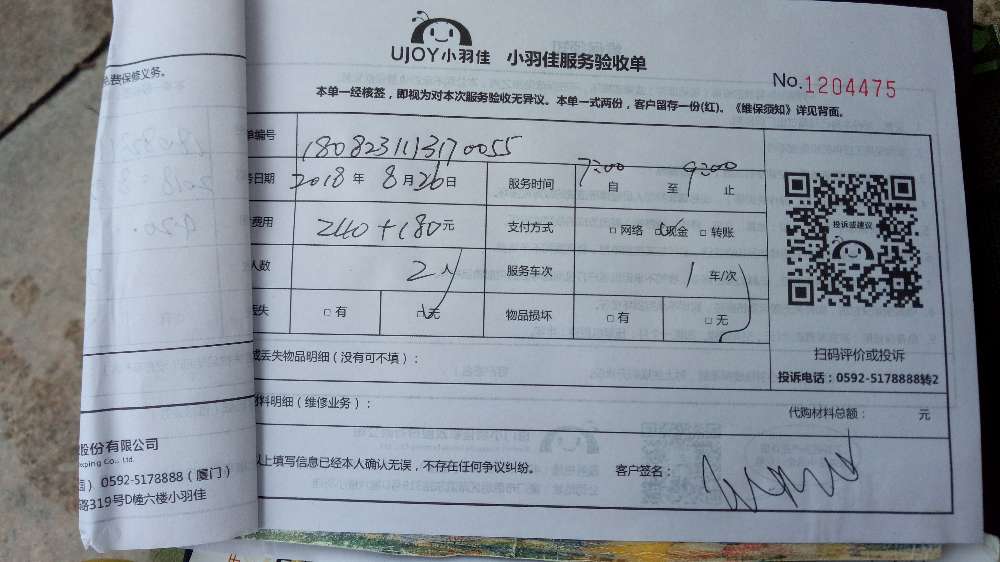 UJOY小羽佳 小羽佳服务验收单
No.1204475
本单一经核签，即视为对本次服务验收无异议。本单一式两份，客户留存一份(红)。《维保须知》详见背面。
免费保修义务。
单编号 180823113170055
务日期 2018年 8月26日 服务时间 7:00自 至9:00止
费用 240+180元 支付方式 □网络 □现金 □转账
人数 2人 服务车次 1车/次
丢失 □有 □无 物品损坏 □有 □无
投诉或建议
扫码评价或投诉
投诉电话：0592-5178888转2
或丢失物品明细（没有可不填）：
材料明细（维修业务）： 代购材料总额： 元
以上填写信息已经本人确认无误，不存在任何争议纠纷。 客户签名：
股份有限公司
ping Co., Ltd.
0592-5178888（厦门）
路319号D幢六楼小羽佳